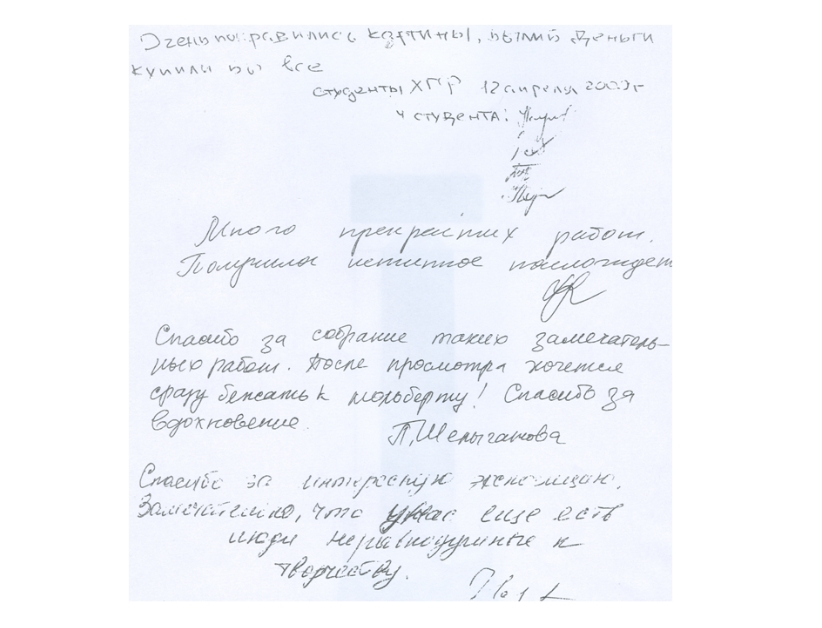 Очень понравились картины, были б деньги
купили бы все
студенты ХГР 12 апреля
4 студента:
Много прекрасных работ.
Получила истинное наслажден
Спасибо за собрание таких замечатель-
ных работ. После просмотра хочется
сразу бежать к мольберту! Спасибо за
вдохновение.
П. Шелыганова
Спасибо за интересную экспозицию.
Замечательно, что у нас еще есть
люди неравнодушные к
творчеству.